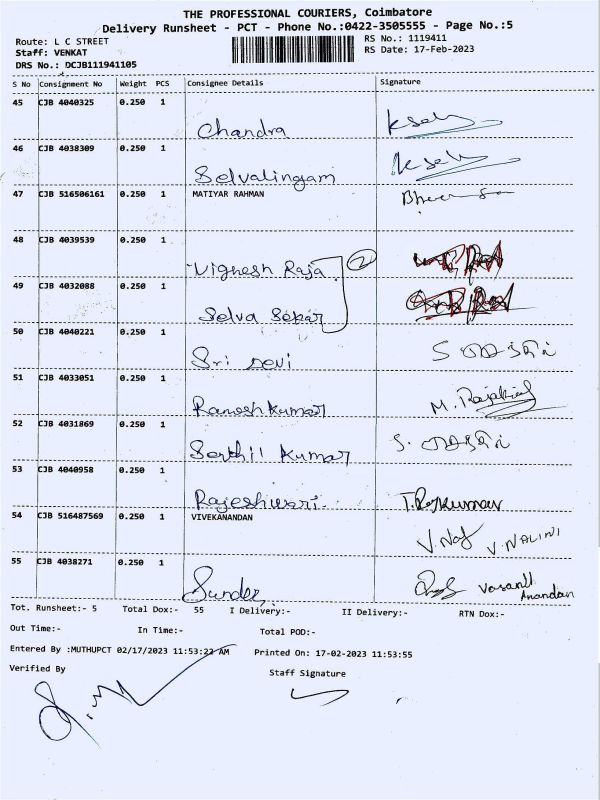 THE PROFESSIONAL COURIERS, Coimbatore
Delivery Runsheet - PCT - Phone No.:0422-3505555 - Page No.:5
Route: L C STREET
RS No.: 1119411
Staff: VENKAT
RS Date: 17-Feb-2023
DRS No.: DCJB111941105
S No Consignment No Weight PCS Consignee Details Signature
45 CJB 4040325 0.250 1
Chandra
46 CJB 4038309 0.250 1
Selvalingam
47 CJB 516506161 0.250 1 MATIYAR RAHMAN
48 CJB 4039539 0.250 1
Vighesh Raja 2
49 CJB 4032088 0.250 1
Selva Sekar
50 CJB 4040221 0.250 1
Sri Devi S
51 CJB 4033051 0.250 1
Ramesh Kumar M.
52 CJB 4031869 0.250 1
Senthil Kumar S.
53 CJB 4040958 0.250 1
Rajeshwari. T. Rajkumar
54 CJB 516487569 0.250 1 VIVEKANANDAN
V. NALINI
55 CJB 4038271 0.250 1
Sunder Vasanth
Anandan
Tot. Runsheet:- 5 Total Dox:- 55 I Delivery:- II Delivery:- RTN Dox:-
Out Time:- In Time:- Total POD:-
Entered By :MUTHUPCT 02/17/2023 11:53:22 AM Printed On: 17-02-2023 11:53:55
Verified By Staff Signature